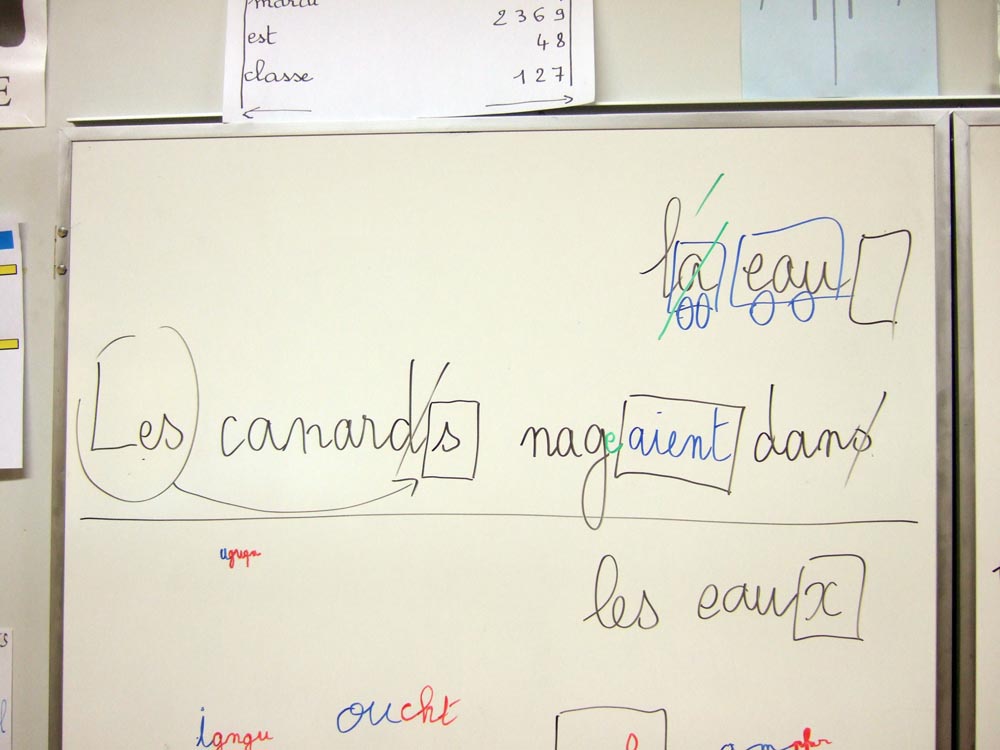 mardi 2369
est 48
classe 127
E
l'a eau
Les canards nageaient dans
ugngu
les eaux
oucht
igngu